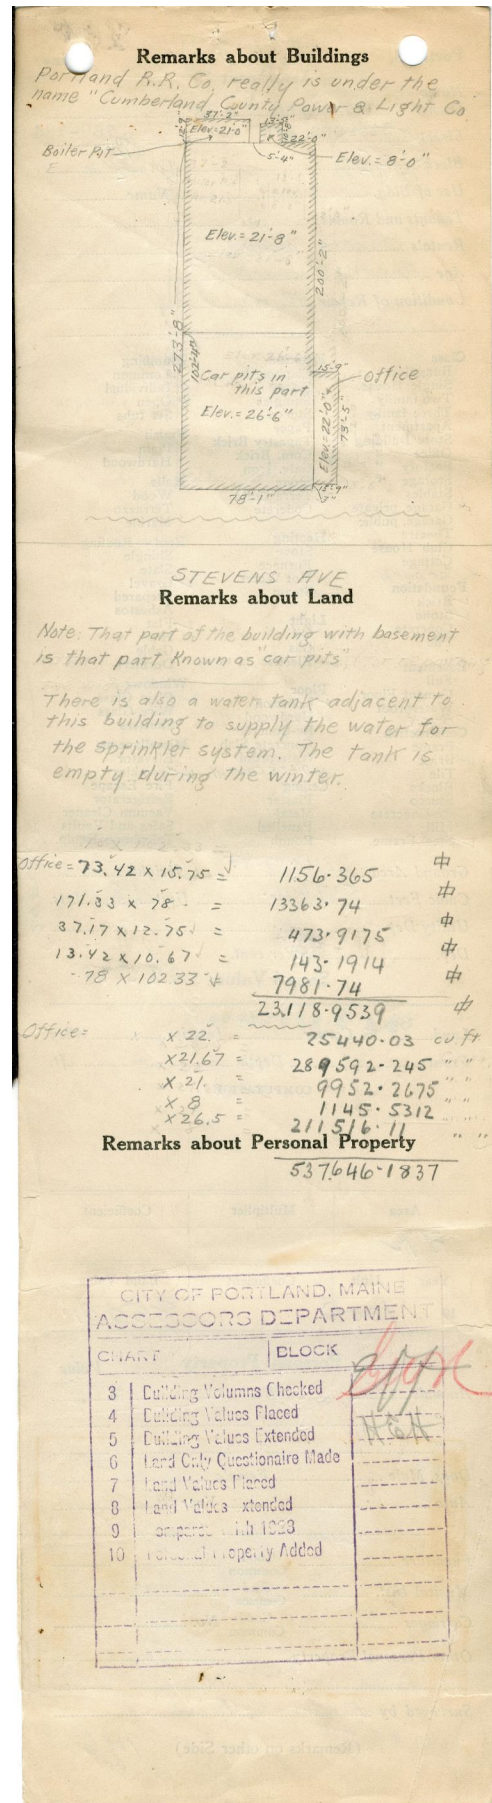 Remarks about Buildings
Portland R.R. Co. really is under the
name "Cumberland County Power & Light Co
37'-2"
Elev=21'-0"
22'-0"
5'-4"
Boiler Pit
Elev.=8'-0"
Elev.=21'-8"
200'-2"
273'-8"
102'-4"
Car pits in
this part
Elev.=26'-6"
15'-9"
Office
Elev.=22'-0"
73'-5"
78'-1"
15'-9"
STEVENS AVE
Remarks about Land
Note: That part of the building with basement
is that part Known as "car pits"
There is also a water tank adjacent to
this building to supply the water for
the sprinkler system. The tank is
empty during the winter.
Office = 73.42 x 15.75 = 1156.365
171.33 x 78 = 13363.74
37.17 x 12.75 = 473.9175
13.42 x 10.67 = 143.1914
78 x 102.33 = 7981.74
23,118.9539
Office = x 22. = 25440.03 cu.ft
x 21.67 = 289592.245 " "
x 21. = 9952.2675 " "
x 8 = 1145.5312 " "
x 26.5 = 211,516.11 " "
Remarks about Personal Property
537,646.1837
CITY OF PORTLAND, MAINE
ASSESSORS DEPARTMENT
CHART BLOCK
3 Building Volumns Checked
4 Building Values Placed
5 Building Values Extended
6 Land Only Questionaire Made
7 Land Values Placed
8 Land Values Extended
9 Compared with 1923
10 Personal Property Added